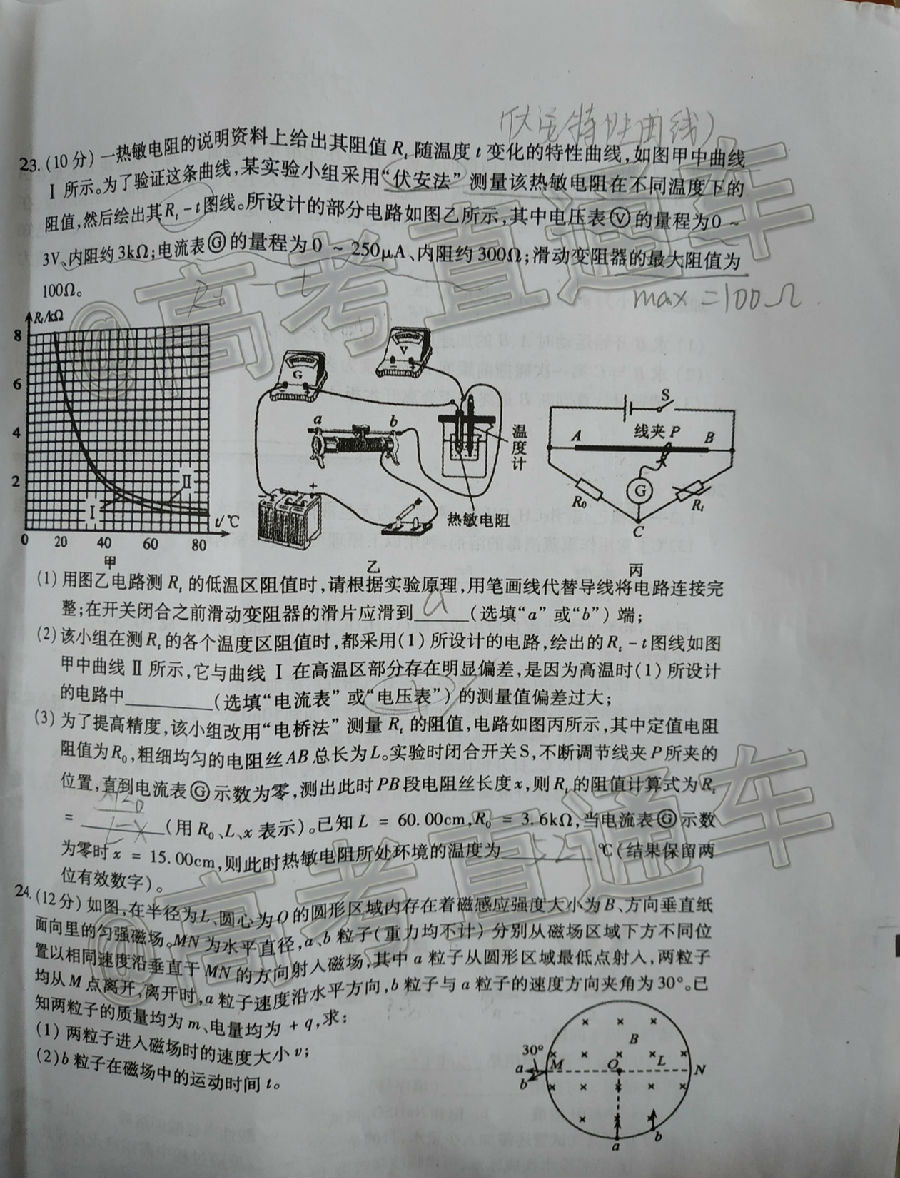 (伏安特性曲线)
23.(10分)一热敏电阻的说明资料上给出其阻值Rt随温度t变化的特性曲线,如图甲中曲线
Ⅰ所示。为了验证这条曲线,某实验小组采用“伏安法”测量该热敏电阻在不同温度下的
阻值,然后绘出其Rt-t图线。所设计的部分电路如图乙所示,其中电压表Ⓥ的量程为0~
3V、内阻约3kΩ;电流表Ⓖ的量程为0~250μA、内阻约300Ω;滑动变阻器的最大阻值为
100Ω。
max=100Ω
Rt/kΩ
8
6
4
2
0 20 40 60 80
t/℃
Ⅰ Ⅱ
甲
G
V
a b
+
温度计
热敏电阻
乙
S
线夹P
A B
G
R0 Rt
C
丙
(1)用图乙电路测Rt的低温区阻值时,请根据实验原理,用笔画线代替导线将电路连接完
整;在开关闭合之前滑动变阻器的滑片应滑到 a (选填“a”或“b”)端;
(2)该小组在测Rt的各个温度区阻值时,都采用(1)所设计的电路,绘出的Rt-t图线如图
甲中曲线Ⅱ所示,它与曲线Ⅰ在高温区部分存在明显偏差,是因为高温时(1)所设计
的电路中________(选填“电流表”或“电压表”)的测量值偏差过大;
(3)为了提高精度,该小组改用“电桥法”测量Rt的阻值,电路如图丙所示,其中定值电阻
阻值为R0,粗细均匀的电阻丝AB总长为L。实验时闭合开关S,不断调节线夹P所夹的
位置,直到电流表Ⓖ示数为零,测出此时PB段电阻丝长度x,则Rt的阻值计算式为Rt
=________(用R0、L、x表示)。已知L=60.00cm,R0=3.6kΩ,当电流表Ⓖ示数
为零时x=15.00cm,则此时热敏电阻所处环境的温度为________℃(结果保留两
位有效数字)。
24.(12分)如图,在半径为L、圆心为O的圆形区域内存在着磁感应强度大小为B、方向垂直纸
面向里的匀强磁场。MN为水平直径,a、b粒子(重力均不计)分别从磁场区域下方不同位
置以相同速度沿垂直于MN的方向射入磁场,其中a粒子从圆形区域最低点射入,两粒子
均从M点离开,离开时,a粒子速度沿水平方向,b粒子与a粒子的速度方向夹角为30°。已
知两粒子的质量均为m、电量均为+q,求:
(1)两粒子进入磁场时的速度大小v;
(2)b粒子在磁场中的运动时间t。
B
30°
a M O L N
b
a b
@高考直通车
@高考直通车